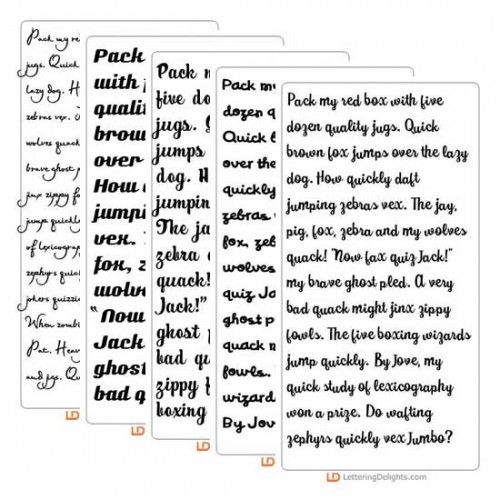 Pack my re
jugs. Quick
lazy dog. H
zebras vex.
wolves quack
brave ghost p
jinx zippy f
jump quickly
of lexicogra
zephyrs quick
jokers quizzi
When zombi
Pat. Hea
and jigs. Q
Pack
with f
quali
brow
over
How
jumpi
vex.
fox, z
wolv
"Now
Jack
ghost
bad q
Pack m
five do
jugs. G
jumps
dog. H
jumpin
The ja
zebra
quack!
Jack!"
ghost
bad qu
zippy f
boxing
Pack my
dozen q
Quick b
over the
quickly
zebras
fox, zeb
wolves
quiz Ja
ghost p
quack
fowls.
wizard
By Jov
Pack my red box with five
dozen quality jugs. Quick
brown fox jumps over the lazy
dog. How quickly daft
jumping zebras vex. The jay,
pig, fox, zebra and my wolves
quack! "Now fax quiz Jack!"
my brave ghost pled. A very
bad quack might jinx zippy
fowls. The five boxing wizards
jump quickly. By Jove, my
quick study of lexicography
won a prize. Do wafting
zephyrs quickly vex Jumbo?
LD LetteringDelights.com